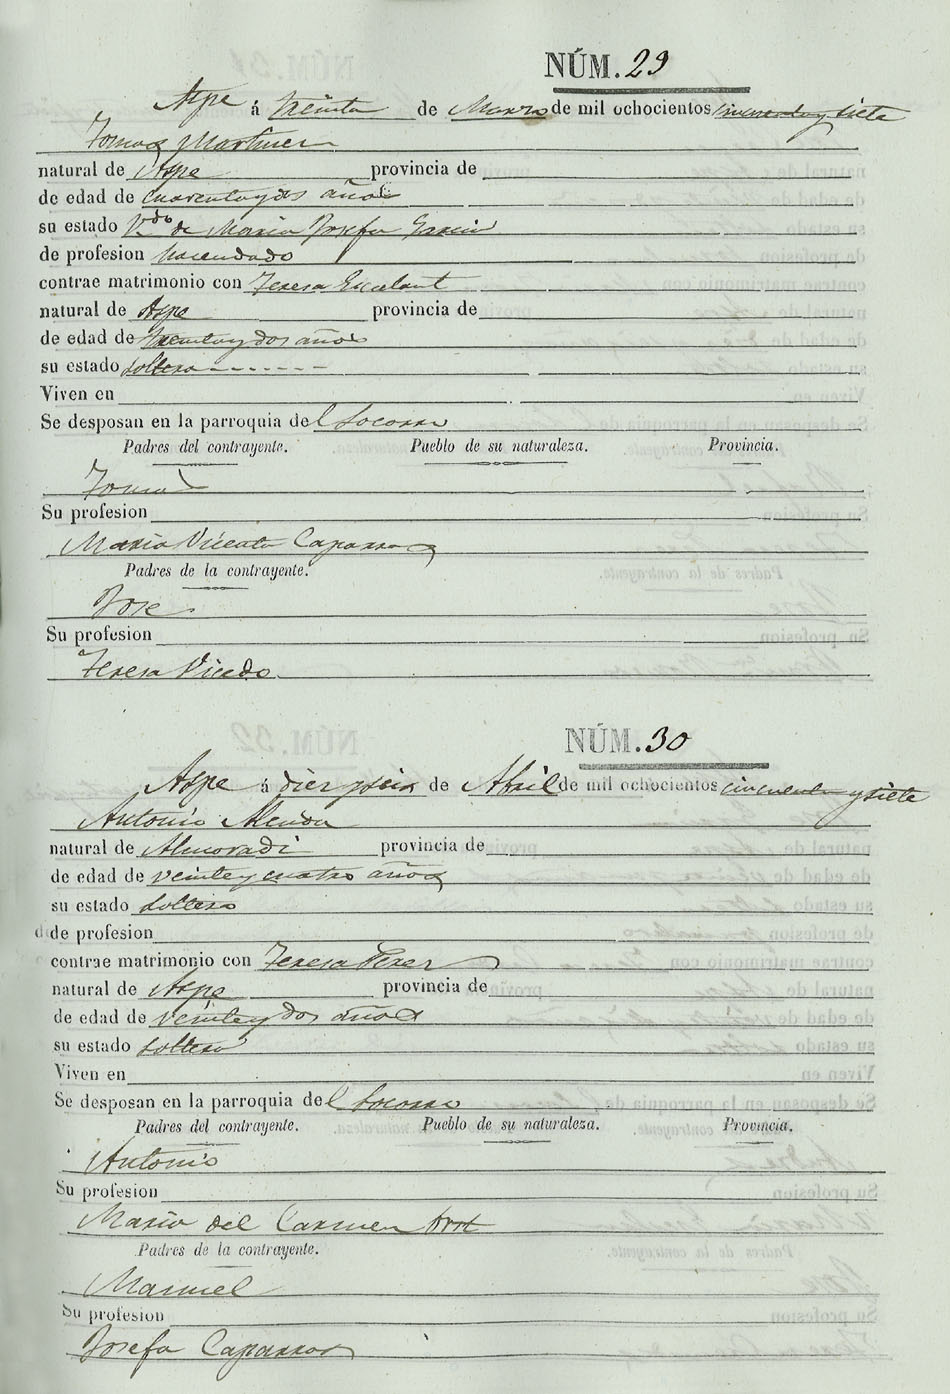 NÚM. 29
Aspe á treinta de Marzo de mil ochocientos cincuenta y siete
Tomas Martinez
natural de Aspe provincia de
de edad de cuarenta y dos años
su estado V.do de Maria Josefa Garcia
de profesion hacendado
contrae matrimonio con Teresa
natural de Aspe provincia de
de edad de treinta y dos años
su estado soltera
Viven en
Se desposan en la parroquia del Socorro
Padres del contrayente. Pueblo de su naturaleza. Provincia.
Tomas
Su profesion
Maria Vicenta Caparros
Padres de la contrayente.
Jose
Su profesion
Teresa Vicedo
NÚM. 30
Aspe á diez y seis de Abril de mil ochocientos cincuenta y siete
Antonio Alenda
natural de Almoradi provincia de
de edad de veinte y cuatro años
su estado soltero
de profesion
contrae matrimonio con Teresa Perez
natural de Aspe provincia de
de edad de veinte y dos años
su estado soltera
Viven en
Se desposan en la parroquia del Socorro
Padres del contrayente. Pueblo de su naturaleza. Provincia.
Antonio
Su profesion
Maria del Carmen
Padres de la contrayente.
Manuel
Su profesion
Josefa Caparros